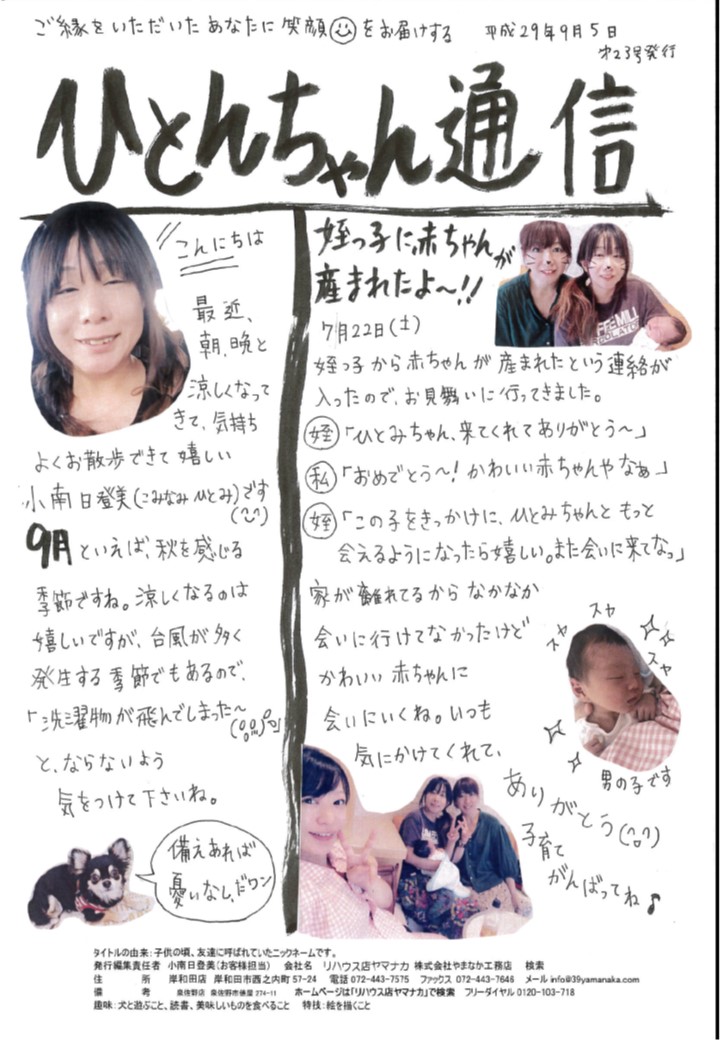 ご縁をいただいた あなたに 笑顔をお届けする
平成29年9月5日
第23号発行
ひとんちゃん通信
こんにちは
最近、
朝、晩と
涼しくなって
きて、気持ち
よくお散歩できて嬉しい
小南日登美(こみなみ ひとみ)です
9月といえば、秋を感じる
季節ですね。涼しくなるのは
嬉しいですが、台風が多く
発生する季節でもあるので、
「洗濯物が飛んでしまった〜」
と、ならないよう
気をつけて下さいね。
備えあれば
憂いなし、だワン
姪っ子に、赤ちゃんが
産まれたよ〜!!
7月22日(土)
姪っ子から赤ちゃんが産まれたという連絡が
入ったので、お見舞いに行ってきました。
姪「ひとみちゃん、来てくれてありがとう〜」
私「おめでとう〜!かわいい赤ちゃんやなぁ」
姪「この子をきっかけに、ひとみちゃんともっと
会えるようになったら嬉しい。また会いに来てなっ」
家が離れてるからなかなか
会いに行けてなかったけど
かわいい赤ちゃんに
会いにいくね。いつも
気にかけてくれて、
ありがとう
子育て
がんばってね♪
スヤ
スヤ
スヤ
男の子です
タイトルの由来:子供の頃、友達に呼ばれていたニックネームです。
発行編集責任者 小南日登美(お客様担当) 会社名 リハウス店ヤマナカ 株式会社やまなか工務店 検索
住 所 岸和田店 岸和田市西之内町57-24 電話 072-443-7575 ファックス 072-443-7646 メール info@39yamanaka.com
備 考 泉佐野店 泉佐野市俵屋 274-11 ホームページは「リハウス店ヤマナカ」で検索 フリーダイヤル 0120-103-718
趣味:犬と遊ぶこと、読書、美味しいものを食べること 特技:絵を描くこと